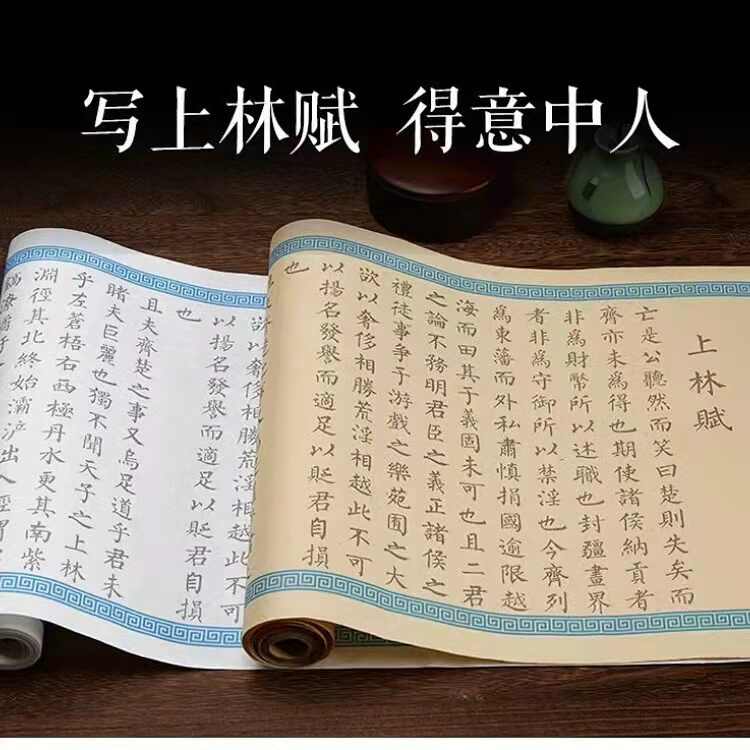 写上林赋 得意中人
上林賦
亡是公聽然而笑曰楚則失矣而
齊亦未爲得也期使諸侯納貢者
非爲財幣所以述職也封疆畫界
者非爲守御所以禁淫也今齊列
爲東藩而外私肅慎捐國逾限越
海而田其于義固未可也且二君
之論不務明君臣之義正諸侯之
禮徒事爭于游戲之樂苑囿之大
欲以奢侈相勝荒淫相越此不可
以揚名發譽而適足以貶君自損
也
欲以奢侈相勝荒淫相越此不可
以揚名發譽而適足以貶君自損
也
且夫齊楚之事又烏足道乎君未
睹夫巨麗也獨不聞天子之上林
乎左蒼梧右西極丹水更其南紫
淵徑其北終始灞滻出入涇渭